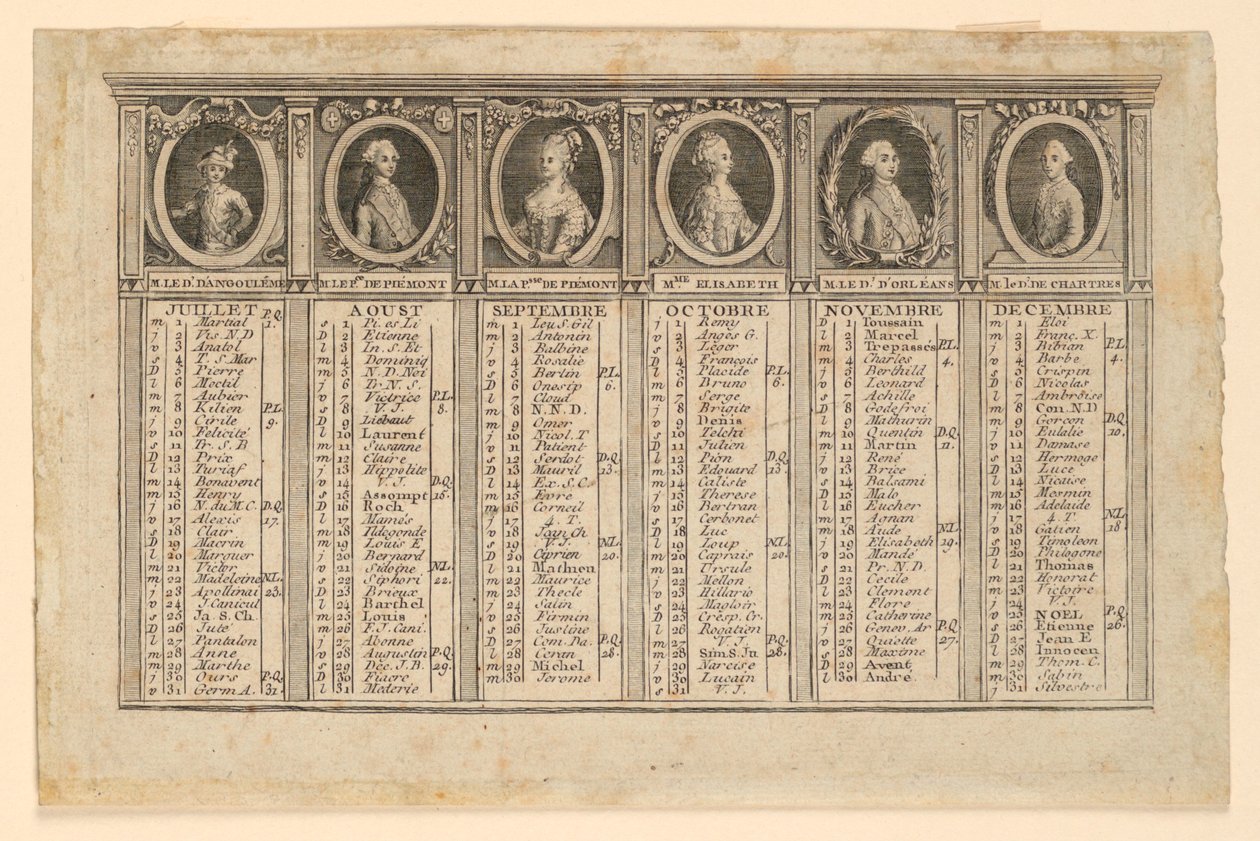 M. LE D.' D'ANGOULÊME
M. LE P.ce DE PIÉMONT
M. LA P.sse DE PIÉMONT
M.ME ELISABETH
M. LE D.' D'ORLÉANS
M. le D.' DE CHARTRES
JUILLET P.Q.
m 1 Martial 1.
j 2 Vis. N.D
v 3 Anatol
s 4 T. S. Mar
D 5 Pierre
l 6 Moctil
m 7 Aubier
m 8 Kilien P.L.
j 9 Cirile 9.
v 10 Félicité
s 11 Tr. S. B
D 12 Prix
l 13 Turiaf
m 14 Bonavent
m 15 Henry
j 16 N. du M. C. D.Q.
v 17 Alexis 17.
s 18 Clair
D 19 Macrin
l 20 Marguer
m 21 Victor
m 22 Madeleine N.L.
j 23 Apollinai 23.
v 24 J. Canicul
s 25 Ja. S. Ch.
D 26 Juté
l 27 Pantalon
m 28 Anne
m 29 Marthe
j 30 Ours P.Q.
v 31 Germ A. 31.
AOUST
s 1 Pi. es Li
D 2 Etienne
l 3 In. S. Et
m 4 Dominiq
m 5 N. D. Nei
j 6 Tr. N. S.
v 7 Victrice P.L.
s 8 V. J. 8.
D 9 Liebaut
l 10 Laurent
m 11 Susanne
m 12 Claire
j 13 Hippolite
v 14 V. J. D.Q.
s 15 Assompt 15.
D 16 Roch
l 17 Mamés
m 18 Hdegonde
m 19 Louis E
j 20 Bernard
v 21 Sidoine N.L.
s 22 Siphori 22.
D 23 Brieux
l 24 Barthel
m 25 Louis
m 26 F. J. Cani.
j 27 Abonne
v 28 Augustin P.Q.
s 29 Déc. J. B. 29.
D 30 Fiacre
l 31 Mederie
SEPTEMBRE
m 1 Leu S. Gil
m 2 Antonin
j 3 Balbine
v 4 Rosalie
s 5 Bertin P.L.
D 6 Onesip 6.
l 7 Cloud
m 8 N. N. D.
m 9 Omer
j 10 Nicol. T
v 11 Patient
s 12 Serdot D.Q.
D 13 Mauril 13.
l 14 Ex. S. C.
m 15 Evre
m 16 Corneil
j 17 4. T.
v 18 Jean Ch
s 19 V. J. N.L.
D 20 Ciprien 20.
l 21 Mathieu
m 22 Maurice
m 23 Thecle
j 24 Salin
v 25 Firmin
s 26 Justine
D 27 Com. Da. P.Q.
l 28 Ceran 28.
m 29 Michel
m 30 Jerome
OCTOBRE
j 1 Remy
v 2 Anges G.
s 3 Léger
D 4 François
l 5 Placide P.L.
m 6 Bruno 6.
m 7 Serge
j 8 Brigite
v 9 Denis
s 10 Telchi
D 11 Julien
l 12 Pion D.Q.
m 13 Edouard 13.
m 14 Caliste
j 15 Therese
v 16 Bertran
s 17 Cerbonet
D 18 Luc
l 19 Loup N.L.
m 20 Caprais 20.
m 21 Ursule
j 22 Mellon
v 23 Hillario
s 24 Magloir
D 25 Crésp. Cr.
l 26 Rogatien
m 27 V. J. P.Q.
m 28 Sim S. Ju 28.
j 29 Narcise
v 30 Lucain
s 31 V. J.
NOVEMBRE
D 1 Toussain
l 2 Marcel
m 3 Trepassés P.L.
m 4 Charles 4.
j 5 Berthild
v 6 Leonard
s 7 Achille
D 8 Godefroi
l 9 Mathurin
m 10 Quentin D.Q.
m 11 Martin 11.
j 12 René
v 13 Brice
s 14 Balsami
D 15 Malo
l 16 Eucher
m 17 Agnan
m 18 Aude N.L.
j 19 Elisabeth 19.
v 20 Mandé
s 21 Pr. N. D.
D 22 Cecile
l 23 Clement
m 24 Flore
m 25 Catherine
j 26 Genev. Ar P.Q.
v 27 Quiette 27.
s 28 Maxime
D 29 Avent
l 30 André.
DECEMBRE
m 1 Eloi
m 2 Franç. X.
j 3 Bibian P.L.
v 4 Barbe 4.
s 5 Crispin
D 6 Nicolas
l 7 Ambroise
m 8 Con. N. D
m 9 Gorcon D.Q.
j 10 Eulalie 10.
v 11 Damase
s 12 Hermoge
D 13 Luce
l 14 Nicaise
m 15 Mesmin
m 16 Adelaide
j 17 4. T. N.L.
v 18 Gatien 18.
s 19 Timoleon
D 20 Philogone
l 21 Thomas
m 22 Honorat
m 23 Victoire
j 24 V. J.
v 25 NOEL P.Q.
s 26 Etienne 26.
D 27 Jean E
l 28 Innocen
m 29 Thom. C.
m 30 Sabin
j 31 Silvestre